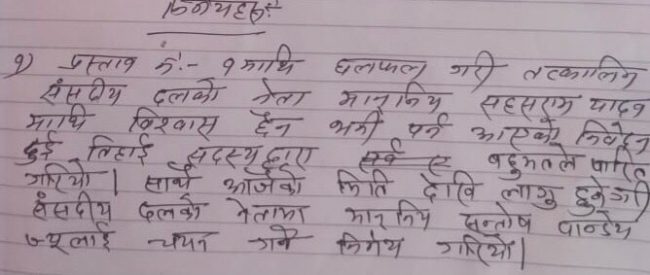 निर्णयहरुः
१) प्रस्ताव नं:- १ माथि छलफल गरी तत्कालिन
संसदीय दलको नेता माननिय सहसराम यादव
माथि विश्वास छैन भनी पर्न आएको निवेदन
दुई तिहाई सदस्य द्वारा बहुमतले पारित
गरियो। साथै आजको मिति देखि लागु हुने गरी
संसदीय दलको नेतामा माननिय सन्तोष पाण्डेय
ज्यूलाई चयन गर्ने निर्णय गरियो।